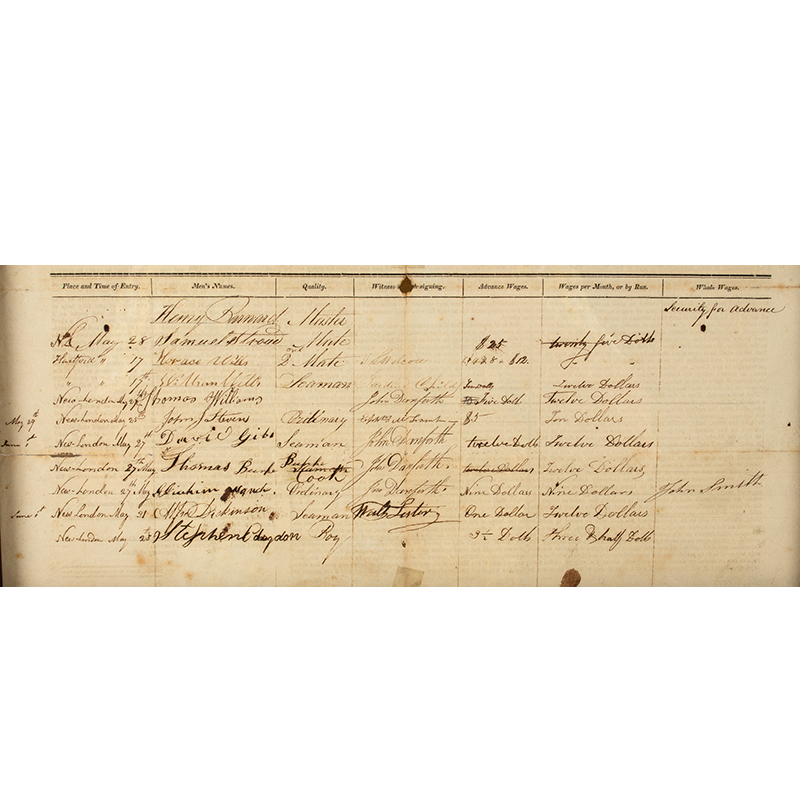 Place and Time of Entry. Men's Names. Quality. Witness to Signing. Advance Wages. Wages per Month, or by Run. Whole Wages.
Henry Barnard Master Security for Advance
N L May 28 Samuel Mate $25 twenty five Dolls
Hartford " 17 Horace 2nd Mate $12.
" " 17th William Seaman Twelve Dollars
New-London May 27th Thomas Williams John Danforth Five Dolls Twelve Dollars
May 29th New-London May 25th John J Stevens Ordinary $5 Ten Dollars
June 1st New-London May 27th David Gibs Seaman John Danforth twelve Dolls Twelve Dollars
New-London 27th May Thomas Seaman Cook Jno Danforth twelve Dollars Twelve Dollars
New-London 27th May Ordinary Jno Danforth Nine Dollars Nine Dollars John Smith
June 1st New-London May 31 Dickinson Seaman One Dollar Twelve Dollars
New-London May 28 Stephen Boy 3½ Dolls Three & half Dolls